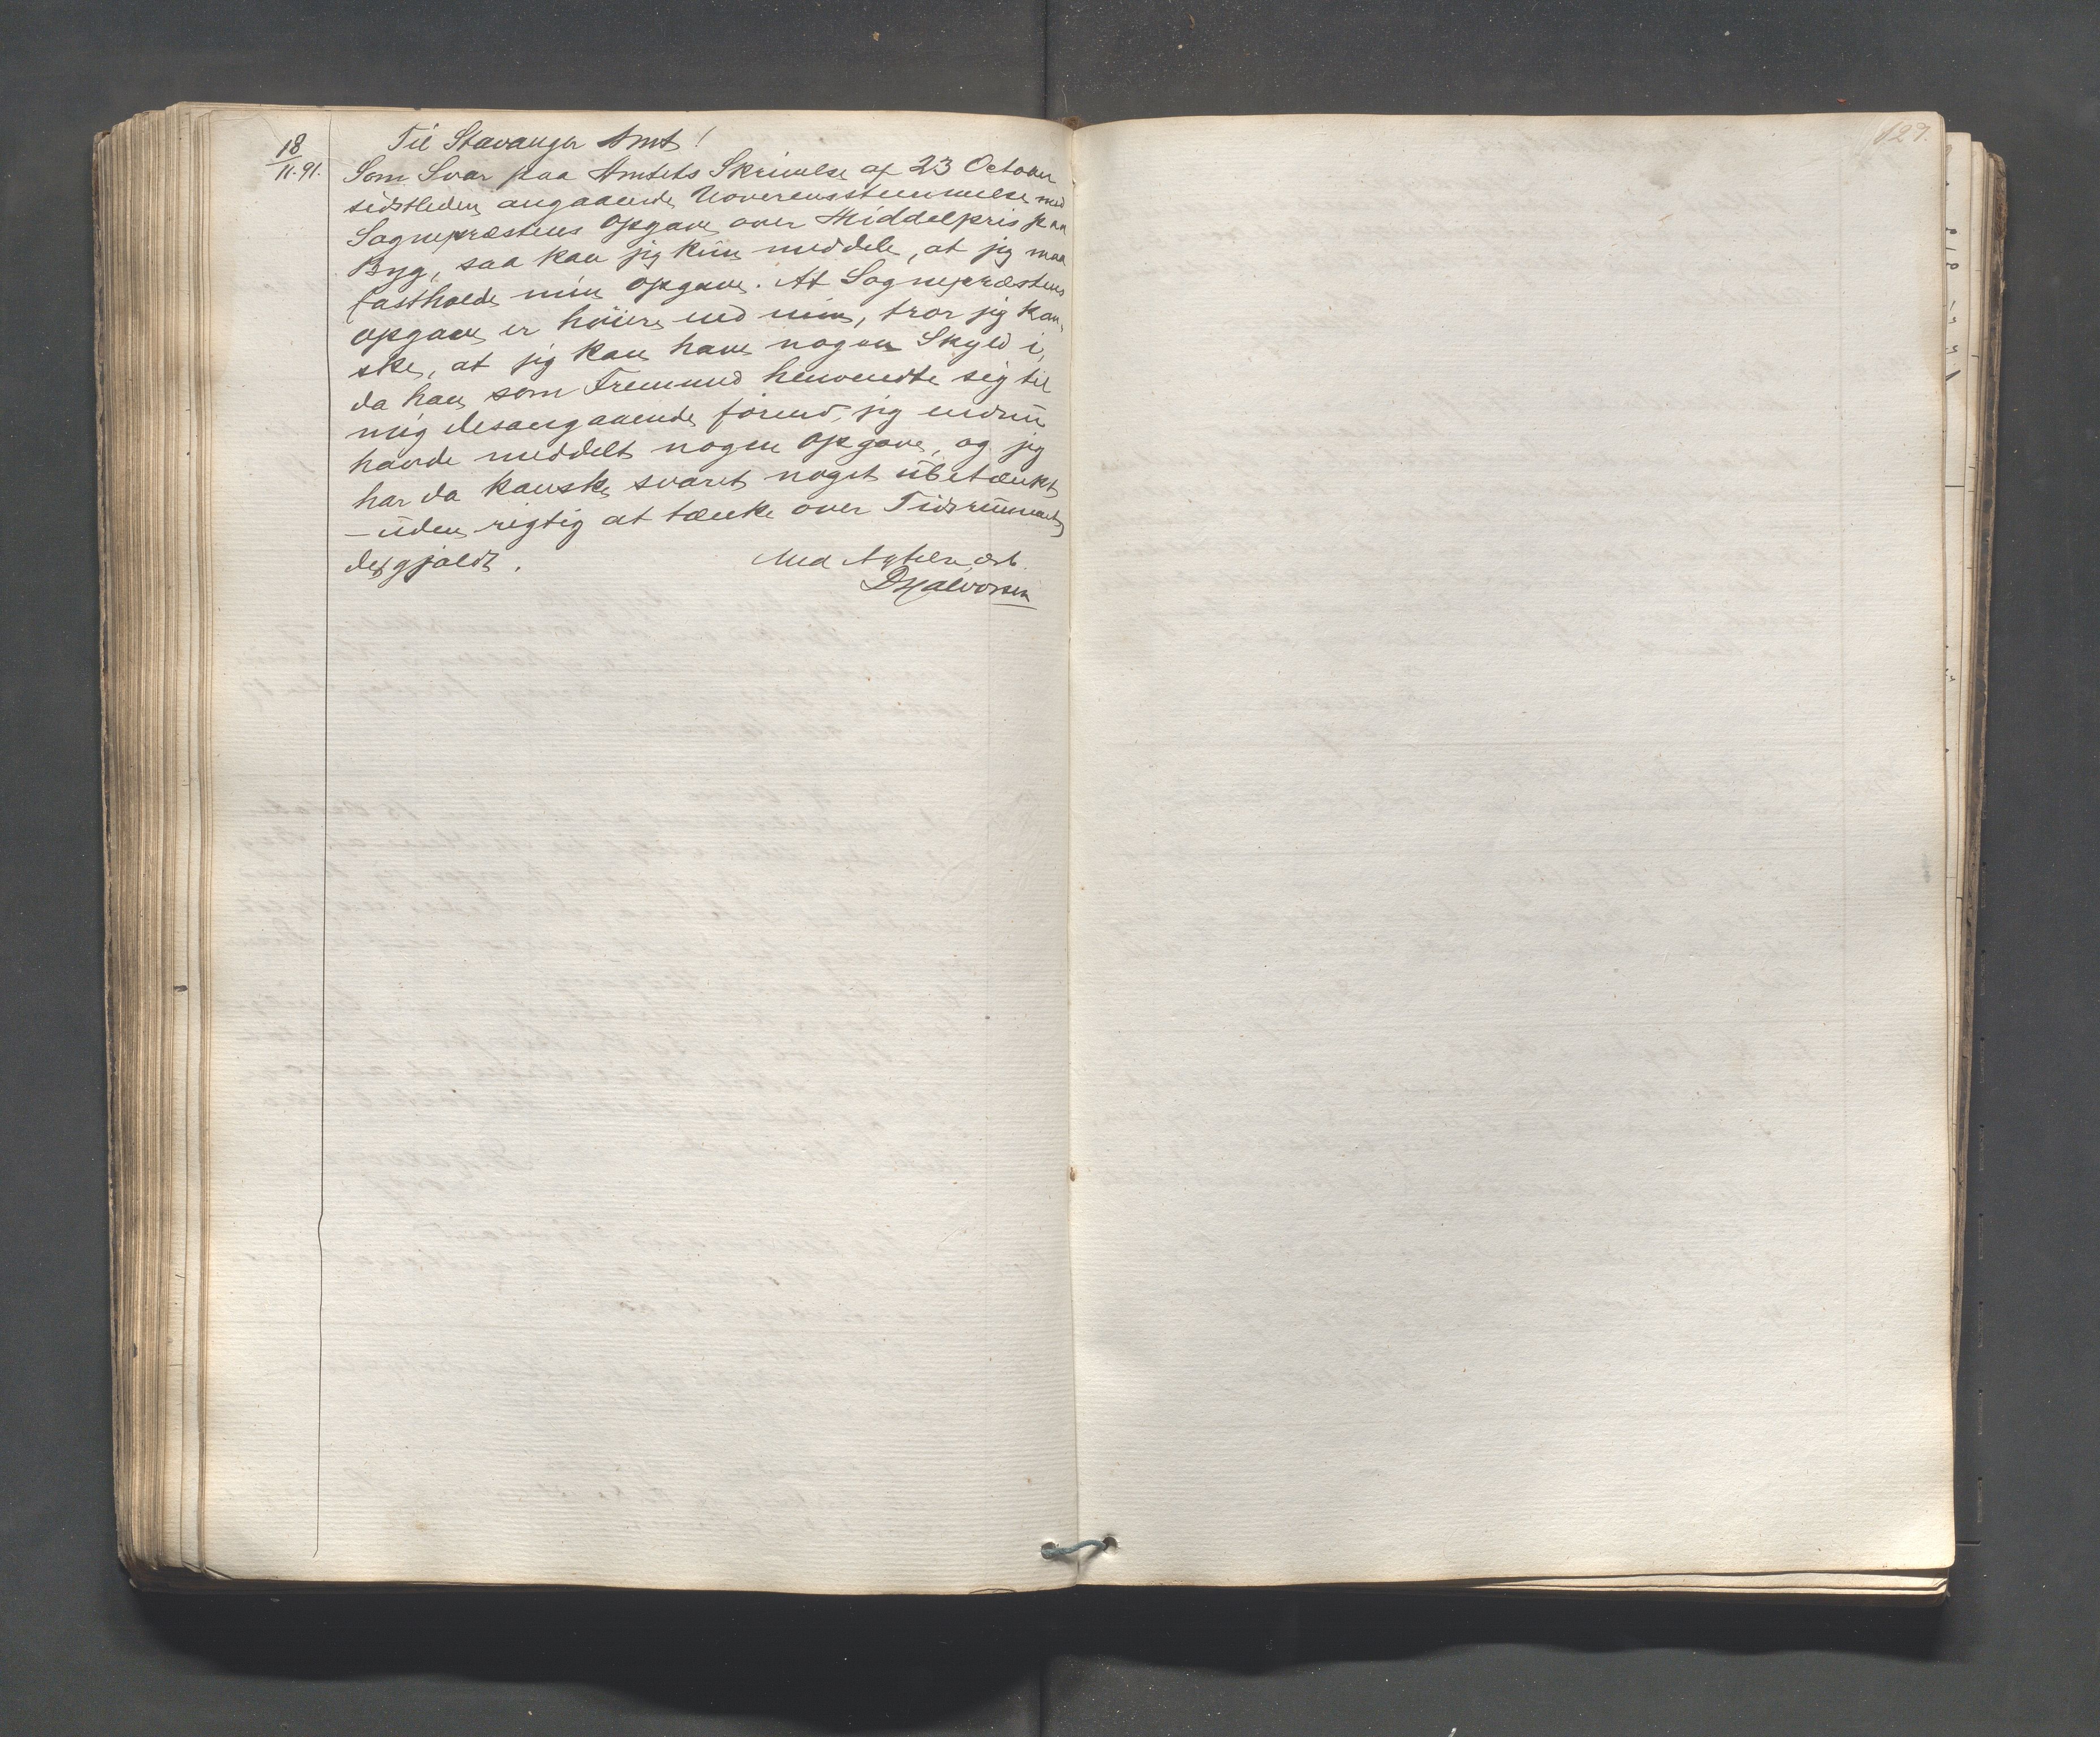 18/11.91.
Til Stavanger Amt!
Som Svar paa Amtets Skrivelse af 23 October
sidstleden angaaende Uoverensstemmelse med
Sognepræstens Opgave over Middelpris paa
Byg, saa kan jeg kun meddele, at jeg maa
fastholde min Opgave. At Sognepræstens
Opgave er høiere end min, tror jeg kan-
ske, at jeg kan have nogen Skyld i,
da han som Fremmed henvendte sig til
mig desangaaende førend jeg endnu
havde meddelt nogen Opgave, og jeg
har da kanske svaret noget ubetænkt
– uden rigtig at tænke over Tidsrummet
det gjaldt.
Med Agtelse ærb.
D Halvorsen
129.